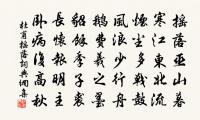 搖落巫山暮
寒江東北流
煙塵多戰鼓
風浪少行舟
鵝費羲之墨
貂餘季子裘
長懷報明主
臥病復高秋
杜甫搖落詞典網集